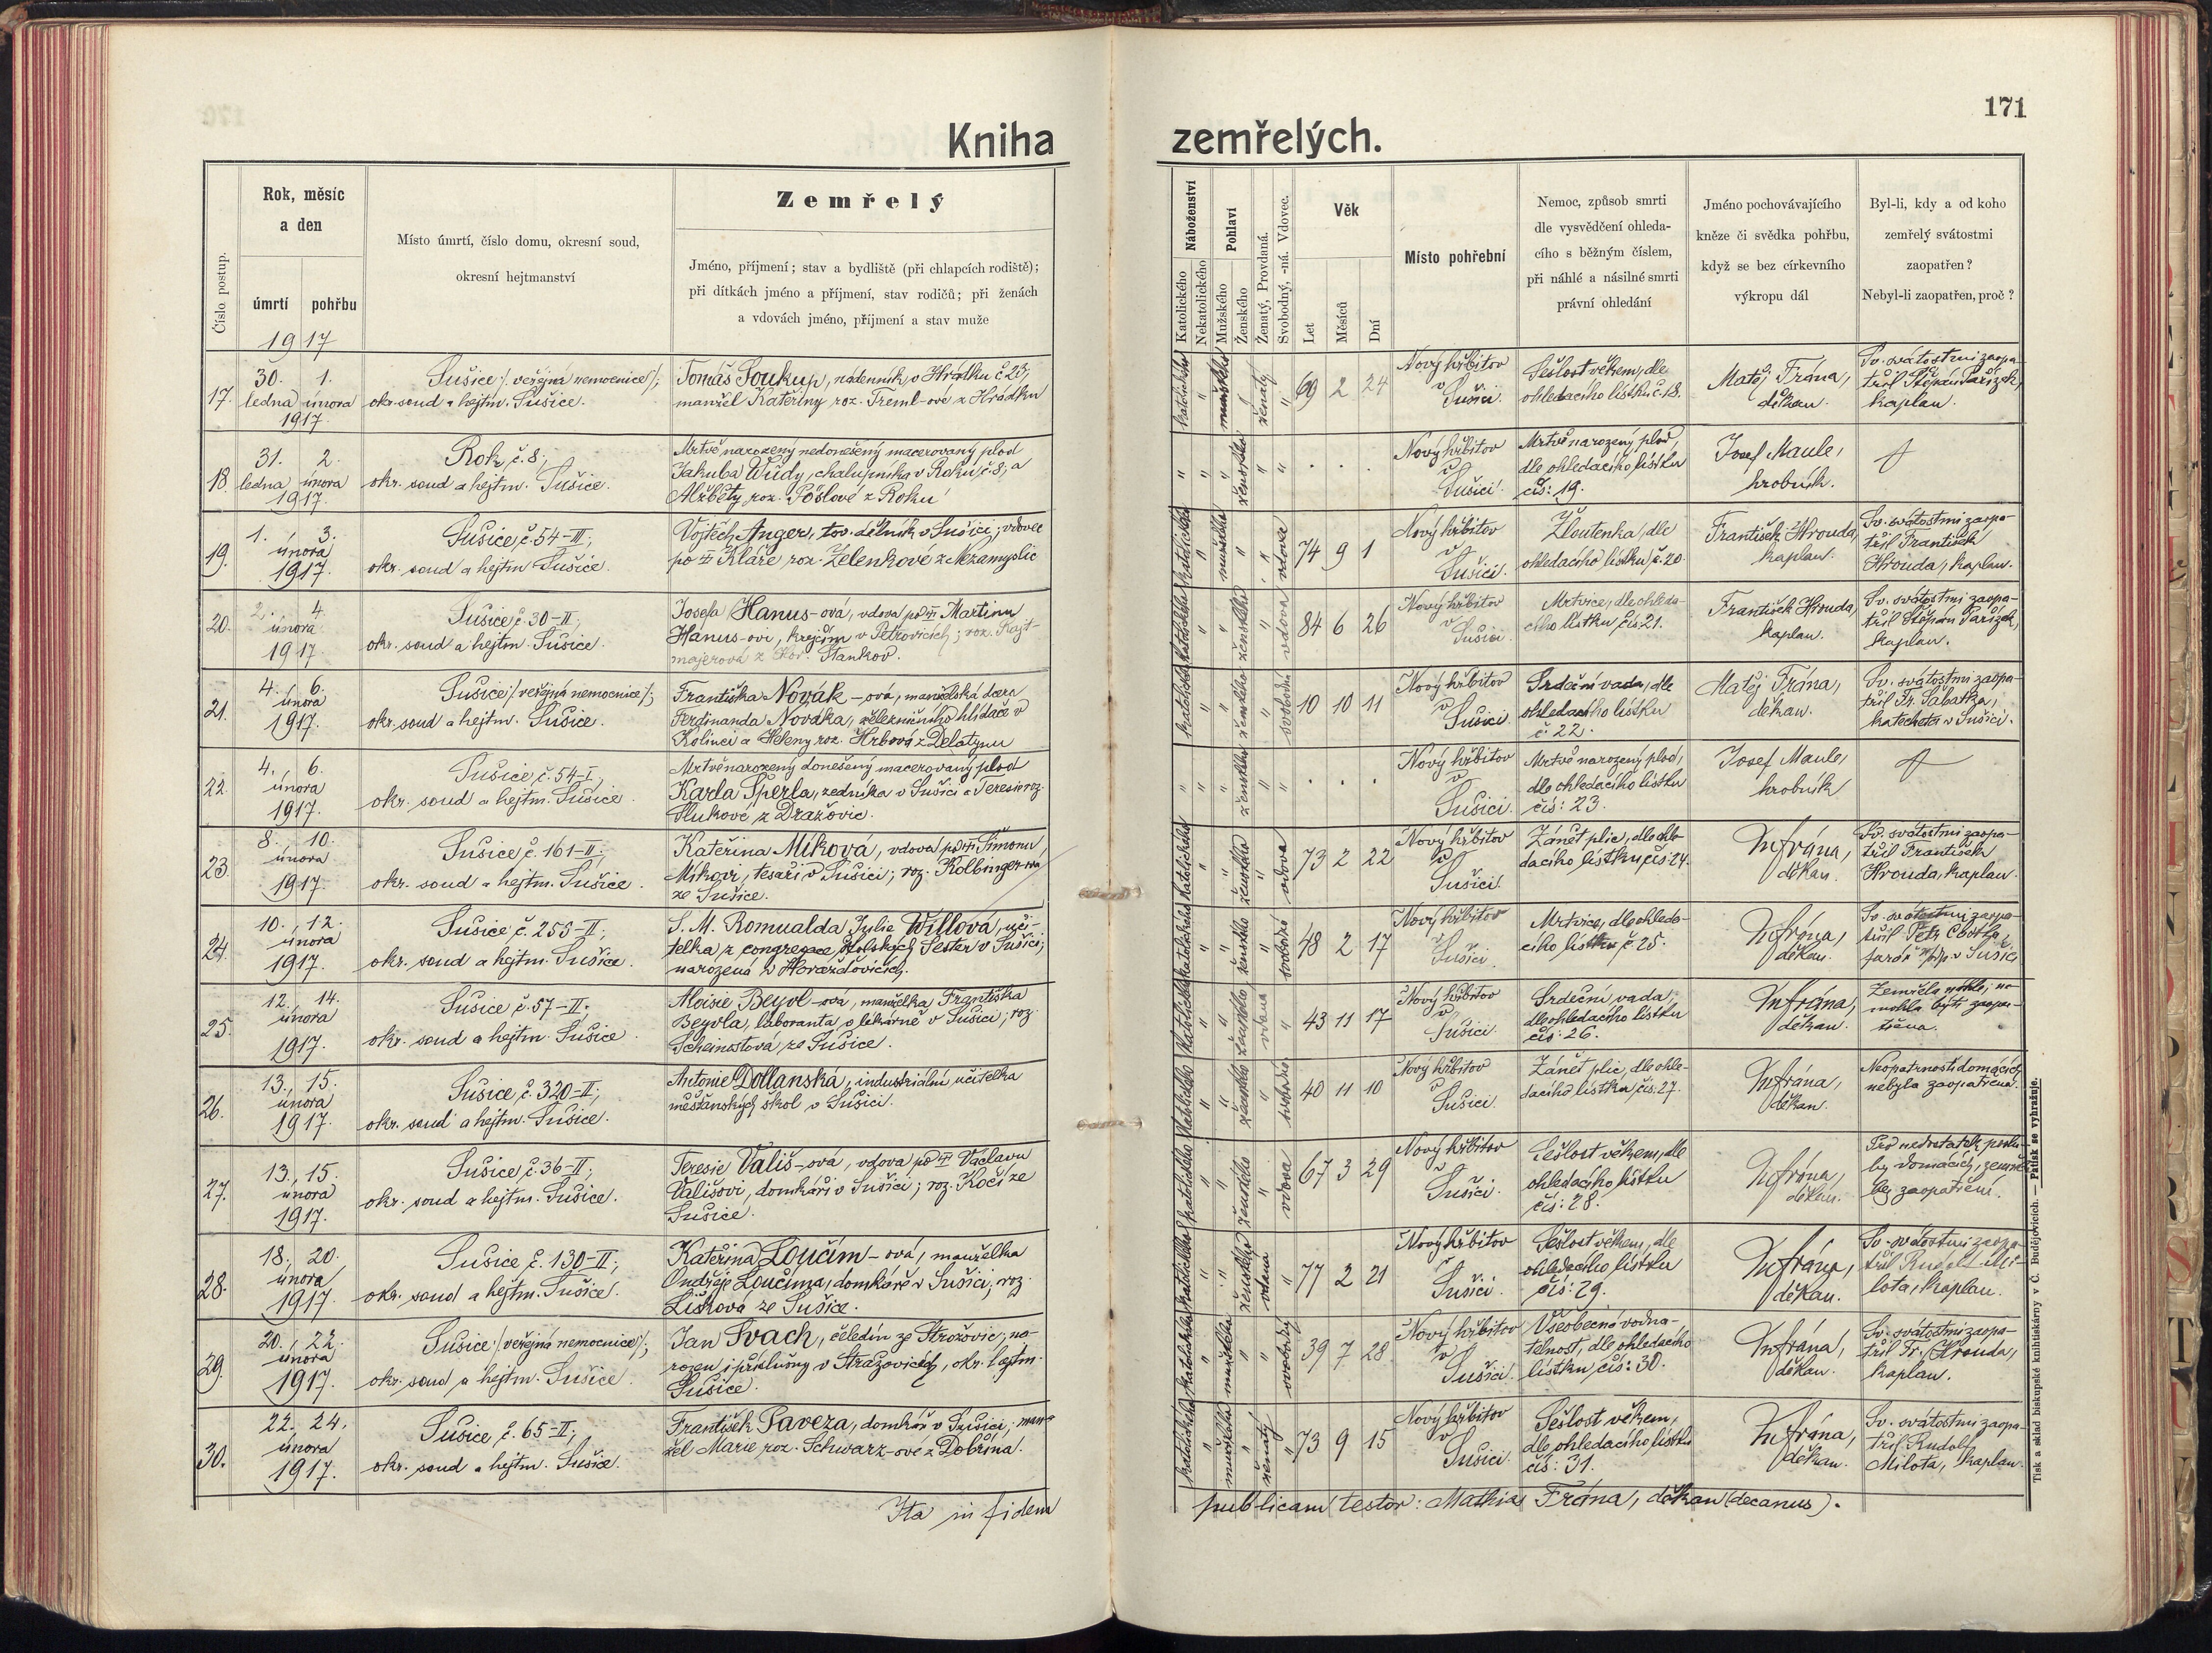 171
Kniha zemřelých.
Číslo postup.
Rok, měsíc
a den
úmrtí
pohřbu
Místo úmrtí, číslo domu, okresní soud,
okresní hejtmanství
Zemřelý
Jméno, příjmení; stav a bydliště (při chlapcích rodiště);
při dítkách jméno a příjmení, stav rodičů; při ženách
a vdovách jméno, příjmení a stav muže
Náboženství
Katolického
Nekatolického
Pohlaví
Mužského
Ženského
Ženatý, Provdaná.
Svobodný, -ná. Vdovec.
Věk
Let
Měsíců
Dní
Místo pohřební
Nemoc, způsob smrti
dle vysvědčení ohleda-
cího s běžným číslem,
při náhlé a násilné smrti
právní ohledání
Jméno pochovávajícího
kněze či svědka pohřbu,
když se bez církevního
výkropu dál
Byl-li, kdy a od koho
zemřelý svátostmi
zaopatřen?
Nebyl-li zaopatřen, proč?
1917
17.
30. 1.
ledna února
1917.
Sušice /veřejná nemocnice/;
okr. soud a hejtm. Sušice.
Tomáš Soukup, nádenník v Hrádku č 23,
manžel Kateřiny roz. Treml-ové z Hrádku
katolického " mužského " ženatý "
69 2 24
Nový hřbitov
v
Sušici.
Sešlost věkem, dle
ohledacího lístku č. 18.
Matěj Frána,
děkan.
Sv. svátostmi zaopa-
třil Štěpán Pařízek,
kaplan.
18.
31. 2.
ledna února
1917.
Rok, č. 8;
okr. soud a hejtm. Sušice.
Mrtvě narozený nedonešený macerovaný plod
Jakuba Wudy, chalupníka v Roku, č. 8, a
Alžběty roz. Pöslové z Roku
" " " ženského " "
. . .
Nový hřbitov
v
Sušici.
Mrtvě narozený plod,
dle ohledacího lístku
čís: 19.
Josef Maule,
hrobník.
19.
1. 3.
února
1917.
Sušice, č. 54-III;
okr. soud a hejtm. Sušice.
Vojtěch Anger, tov. dělník v Sušici; vdovec
po Kláře roz. Zelenkové z Nezamyslic
katolického " mužského " " vdovec
74 9 1
Nový hřbitov
v
Sušici.
Žloutenka, dle
ohledacího lístku, č. 20.
František Hrouda,
kaplan.
Sv. svátostmi zaopa-
třil František
Hrouda, kaplan.
20.
2. 4.
února
1917.
Sušice, č. 30-II;
okr. soud a hejtm. Sušice.
Josefa Hanus-ová, vdova po Martinu
Hanus-ovi, krejčím v Petrovicích; roz.
majerová z Staňkov.
katolického " " ženského " vdova
84 6 26
Nový hřbitov
v
Sušici.
Mrtvice, dle ohleda-
cího lístku čís. 21.
František Hrouda,
kaplan.
Sv. svátostmi zaopa-
třil Štěpán Pařízek,
kaplan.
21.
4. 6.
února
1917.
Sušice /veřejná nemocnice/;
okr. soud a hejtm. Sušice.
Františka Novák-ová, manželská dcera
Ferdinanda Nováka, železničního hlídače v
Kolinci a Heleny roz. Hrbová z Delatynu
katolického " " ženského " svobodná
10 10 11
Nový hřbitov
v
Sušici
Srdeční vada, dle
ohledacího lístku
č. 22.
Matěj Frána,
děkan.
Sv. svátostmi zaopa-
třil Fr. Sabatka,
katecheta v Sušici.
22.
4. 6.
února
1917.
Sušice, č. 54-I,
okr. soud a hejtm. Sušice.
Mrtvě narozený donešený macerovaný plod
Karla Šperla, zedníka v Sušici a Teresie roz.
Slukové z Dražovic.
" " " ženského " "
. . .
Nový hřbitov
v
Sušici.
Mrtvě narozený plod,
dle ohledacího lístku
čís: 23.
Josef Maule,
hrobník
23.
8. 10.
února
1917.
Sušice, č. 161-II;
okr. soud a hejtm. Sušice.
Kateřina Míková, vdova po Šimonu
Míkovi, tesaři v Sušici; roz. Kolbinger-ová
ze Sušice.
katolického " " ženského " vdova
73 2 22
Nový hřbitov
v
Sušici.
Zánět plic, dle ohle-
dacího lístku čís. 24.
M Frána,
děkan.
Sv. svátostmi zaopa-
třil František
Hrouda, kaplan.
24.
10., 12.
února
1917.
Sušice č. 255-II;
okr. soud a hejtm. Sušice.
S. M. Romualda Julie Willová, uči-
telka z congregace školských Sester v Sušici;
narozená v Horažďovicích.
katolického " " ženského " svobodná
48 2 17
Nový hřbitov
v
Sušici.
Mrtvice, dle ohleda-
cího lístku č. 25.
M Frána,
děkan.
Sv. svátostmi zaopa-
třil Petr
farář v Sušici
25.
12. 14.
února
1917.
Sušice, č. 57-II;
okr. soud a hejtm. Sušice.
Aloisie Beyvl-ová, manželka Františka
Beyvla, laboranta v lékárně v Sušici; roz.
Scheinostová ze Sušice.
katolického " " ženského vdaná "
43 11 17
Nový hřbitov
v
Sušici.
Srdeční vada,
dle ohledacího lístku
čís: 26.
M Frána,
děkan.
Zemřela náhle; ne-
mohla býti zaopa-
třena.
26.
13., 15.
února
1917.
Sušice, č. 320-II;
okr. soud a hejtm. Sušice.
Antonie Dollanská, industriální učitelka
měšťanských škol v Sušici.
katolického " " ženského " svobodná
40 11 10
Nový hřbitov
v
Sušici.
Zánět plic, dle ohle-
dacího lístku, čís. 27.
M Frána,
děkan.
Neopatrností domácích
nebyla zaopatřena.
27.
13., 15.
února
1917.
Sušice, č. 36-II;
okr. soud a hejtm. Sušice.
Teresie Vališ-ová, vdova po Václavu
Vališovi, domkáři v Sušici; roz. Kočí ze
Sušice.
katolického " " ženského " vdova
67 3 29
Nový hřbitov
v
Sušici.
Sešlost věkem, dle
ohledacího lístku
čís: 28.
M Frána,
děkan.
Pro nedostatek poslu-
hy domácích, zemřela
bez zaopatření.
28.
18., 20.
února
1917.
Sušice č. 130-II;
okr. soud a hejtm. Sušice.
Kateřina Loučím-ová, manželka
Ondřeje Loučíma, domkáře v Sušici; roz.
Lišková ze Sušice.
katolického " " ženského vdaná "
77 2 21
Nový hřbitov
v
Sušici.
Sešlost věkem, dle
ohledacího lístku
čís: 29.
M Frána,
děkan.
Sv. svátostmi zaopa-
třil Rudolf Mi-
lota, kaplan.
29.
20., 22.
února
1917.
Sušice /veřejná nemocnice/;
okr. soud a hejtm. Sušice.
Jan Svach, čeledín ze Stražovic, na-
rozen i příslušný v Stražovicích, okr. hejtm.
Sušice.
katolického " mužského " " svobodný
39 7 28
Nový hřbitov
v
Sušici.
Všeobecná vodna-
telnost, dle ohledacího
lístku, čís: 30.
M Frána,
děkan.
Sv. svátostmi zaopa-
třil Fr. Hrouda,
kaplan.
30.
22. 24.
února
1917.
Sušice, č. 65-II;
okr. soud a hejtm. Sušice.
František Paveza, domkář v Sušici, man-
žel Marie roz. Schwarz-ové z Dobřína.
katolického " mužského " ženatý "
73 9 15
Nový hřbitov
v
Sušici.
Sešlost věkem,
dle ohledacího lístku
čís: 31.
M Frána,
děkan.
Sv. svátostmi zaopa-
třil Rudolf
Milota, kaplan.
Ita in fidem publicam testor: Mathias Frána, děkan (decanus).
Tisk a sklad biskupské knihtiskárny v Č. Budějovicích. — Patisk se vyhražuje.